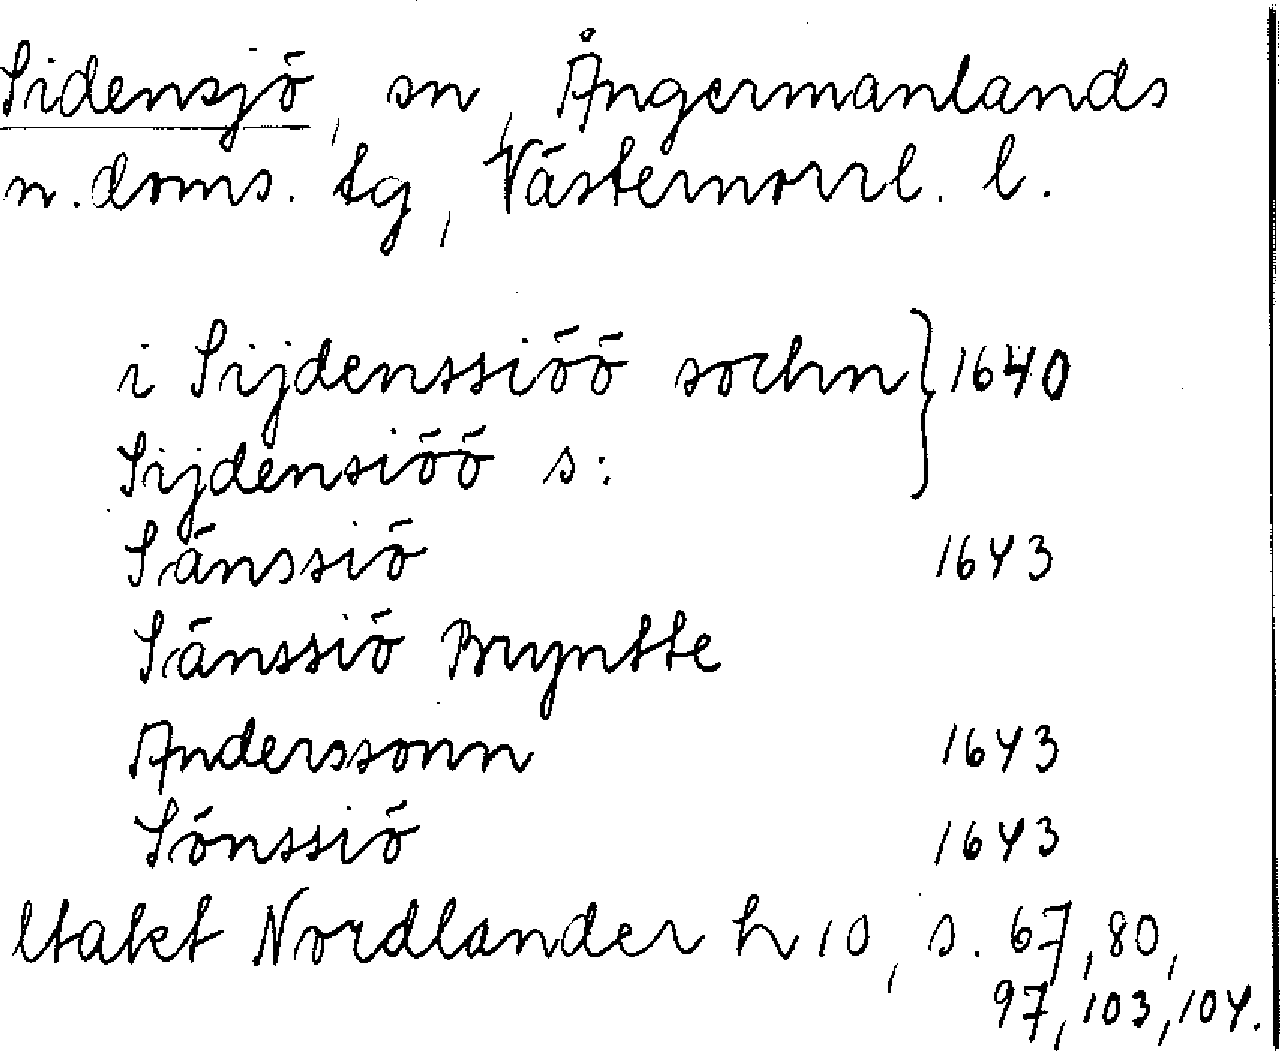 Sidensjö, sn, Ångermanlands
n. doms. tg, Västernorrl. l.
i Sijdenssiöö sochn } 1640
Sijdensiöö s:
Sänssiö 1643
Sänssiö Bryntte
Anderssonn 1643
Sönssiö 1643
Utakt Nordlander h 10, s. 67, 80,
97, 103, 104.